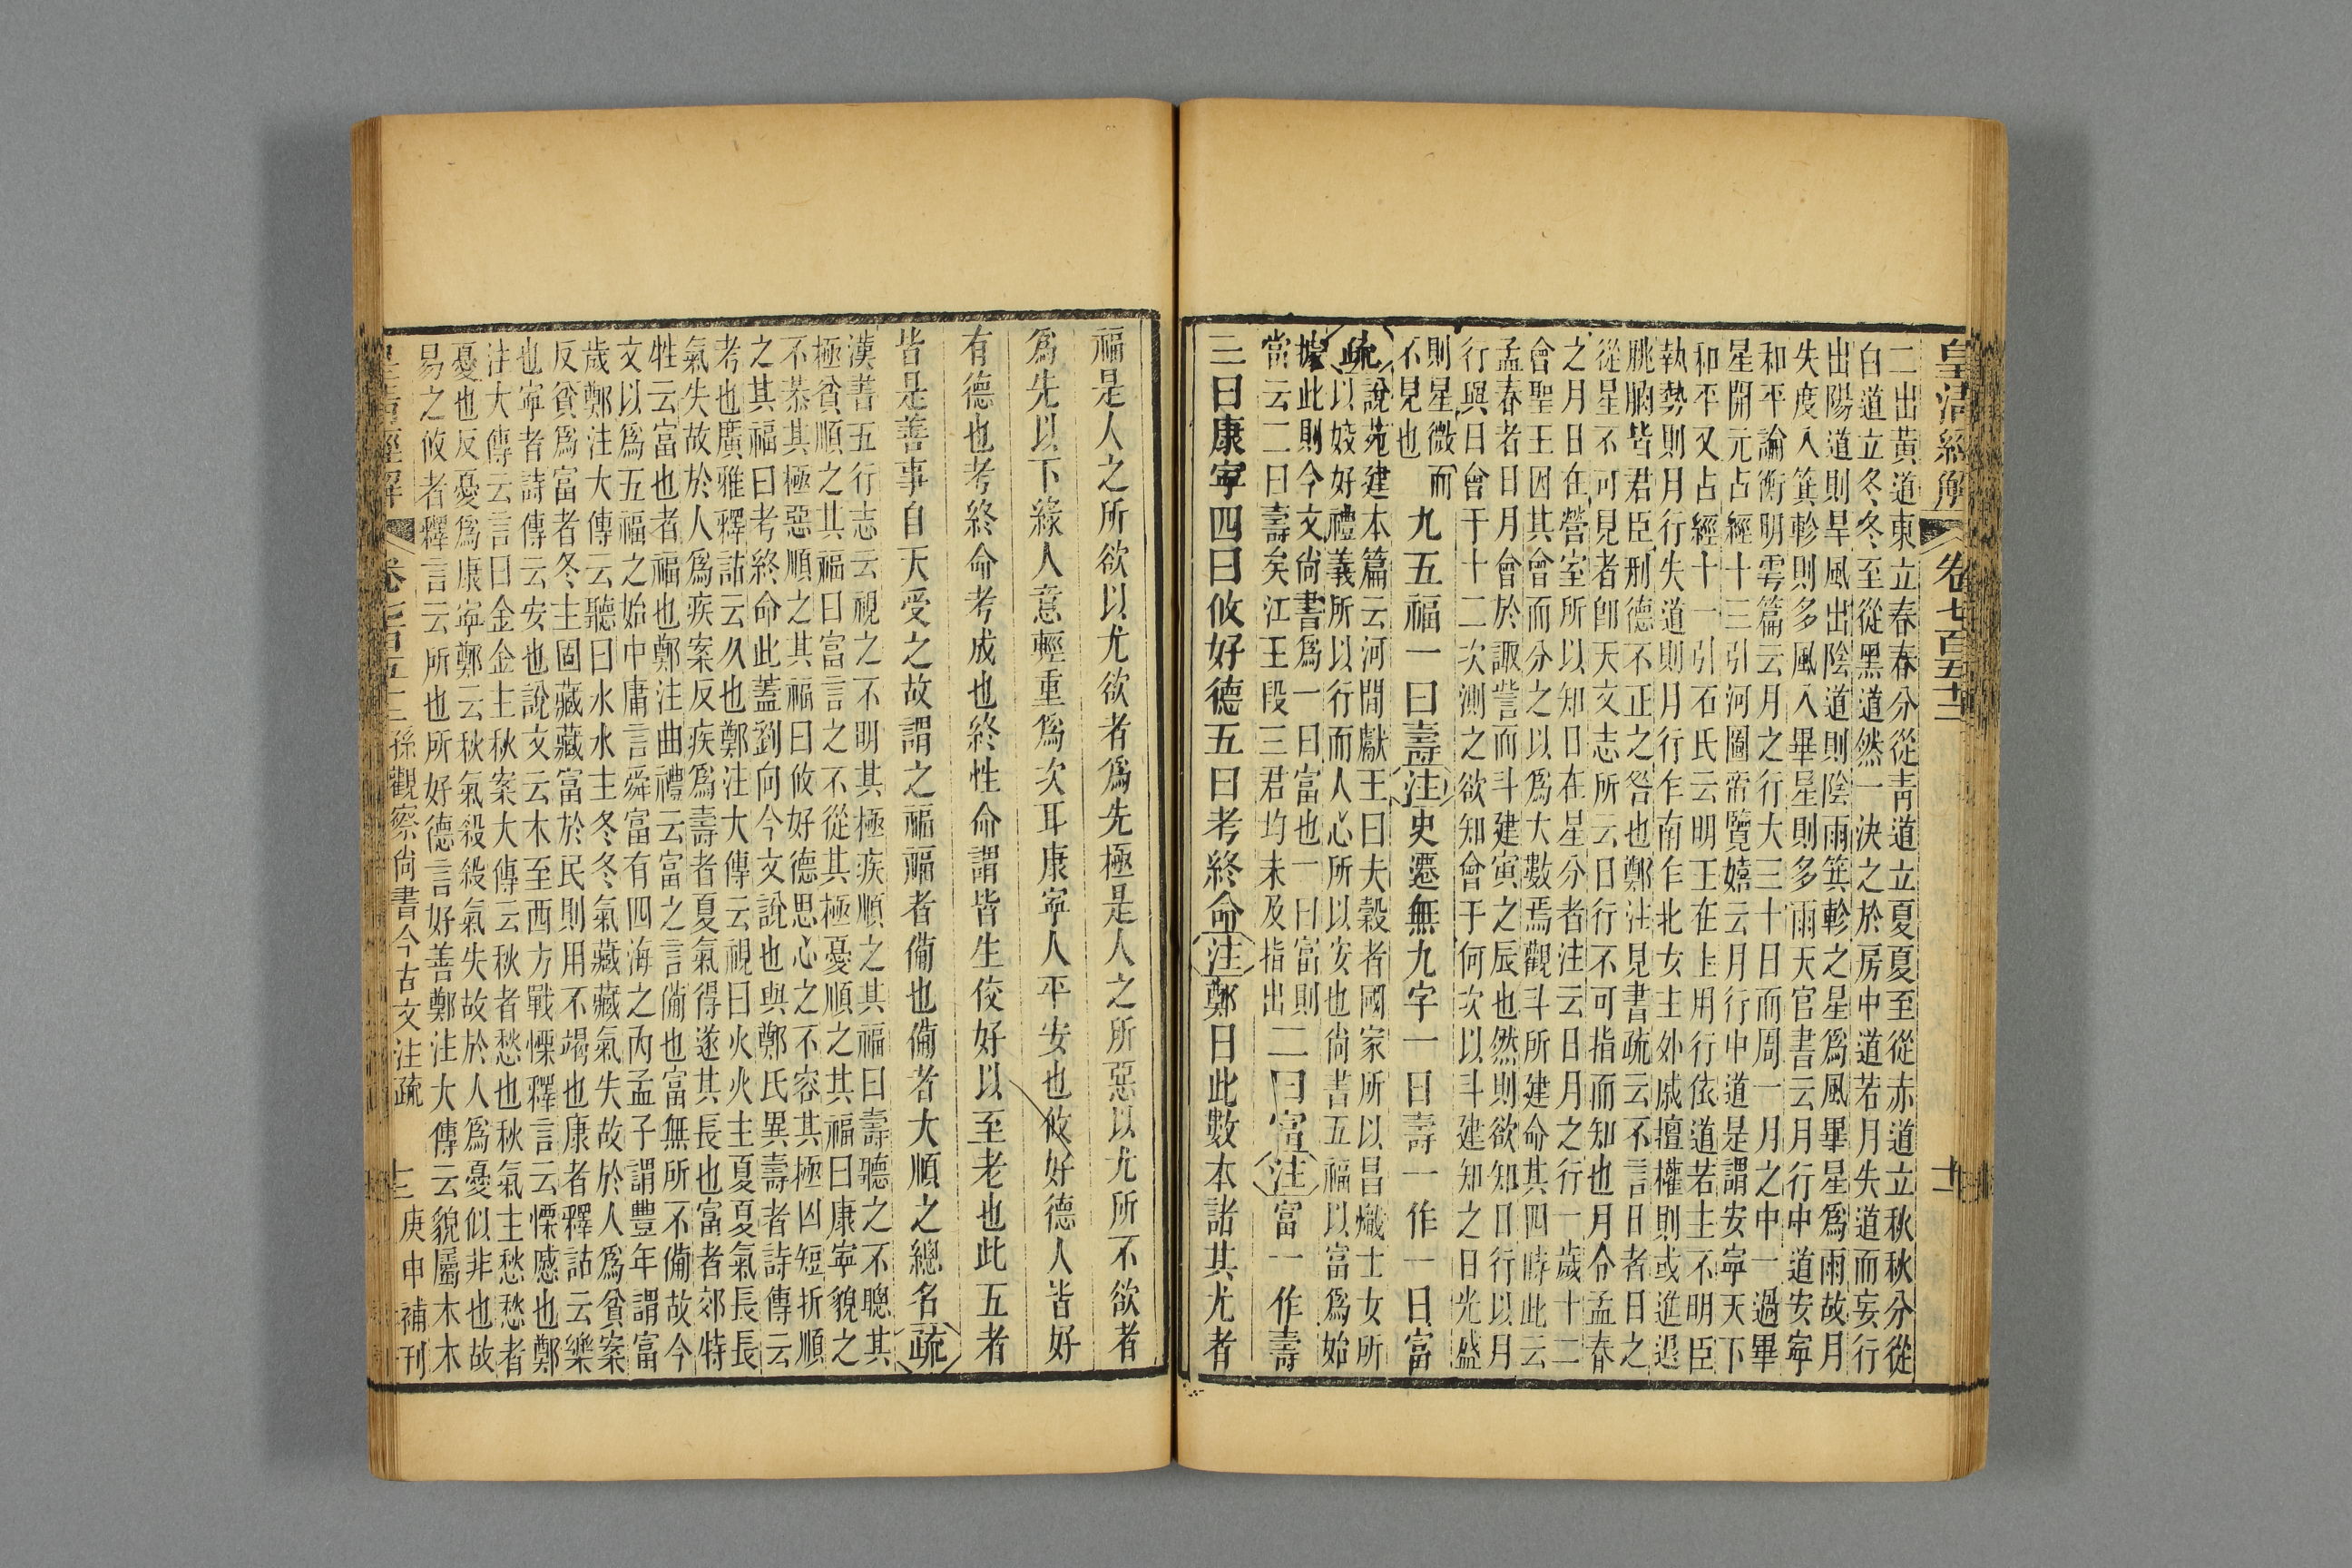 皇清經解 卷七百五十二 十二
二出黃道東立春春分從靑道立夏夏至從赤道立秋秋分從
白道立冬冬至從黑道然一決之於房中道若月失道而妄行
出陽道則旱風出陰道則陰雨箕軫之星爲風畢星爲雨故月
失度入箕軫則多風入畢星則多雨天官書云月行中道安寧
和平論衡明雩篇云月之行大三十日而周一月之中一過畢
星開元占經十三引河圖帝覽嬉云月行中道是謂安寧天下
和平又占經十一引石氏云明王在上用行依道若主不明臣
執勢則月行失道則月行乍南乍北女主外戚擅權則或進退
朓朒皆君臣刑德不正之咎也鄭注見書疏云不言日者日之
從星不可見者卽天文志所云日行不可指而知也月令孟春
之月日在營室所以知日在星分者注云日月之行一歲十二
會聖王因其會而分之以爲大數焉觀斗所建命其四時此云
孟春者日月會於諏訾而斗建寅之辰也然則欲知日行以月
行與日會于十二次測之欲知會于何次以斗建知之日光盛
則星微而
不見也
九五福一曰壽注史遷無九字一曰壽一作一曰富
疏說苑建本篇云河間獻王曰夫穀者國家所以昌熾士女所
以姣好禮義所以行而人心所以安也尙書五福以富爲始
據此則今文尙書爲一曰富也一曰富則
當云二曰壽矣江王段三君均未及指出
二曰富注富一作壽
三曰康寧四曰攸好德五曰考終命注鄭曰此數本諸其尤者
福是人之所欲以尤欲者爲先極是人之所惡以尤所不欲者
爲先以下緣人意輕重爲次耳康寧人平安也攸好德人皆好
有德也考終命考成也終性命謂皆生佼好以至老也此五者
皆是善事自天受之故謂之福福者備也備者大順之總名疏
漢書五行志云視之不明其極疾順之其福曰壽聽之不聰其
極貧順之其福曰富言之不從其極憂順之其福曰康寧貌之
不恭其極惡順之其福曰攸好德思心之不容其極凶短折順
之其福曰考終命此蓋劉向今文說也與鄭氏異壽者詩傳云
考也廣雅釋詁云久也鄭注大傳云視曰火火主夏夏氣長長
氣失故於人爲疾案反疾爲壽者夏氣得遂其長也富者郊特
牲云富也者福也鄭注曲禮云富之言備也富無所不備故今
文以爲五福之始中庸言舜富有四海之內孟子謂豐年謂富
歲鄭注大傳云聽曰水水主冬冬氣藏藏氣失故於人爲貧案
反貧爲富者冬主固藏藏富於民則用不竭也康者釋詁云樂
也寧者詩傳云安也說文云木至西方戰慄釋言云慄慼也鄭
注大傳云言曰金金主秋案大傳云秋者愁也秋氣主愁愁者
憂也反憂爲康寧鄭云秋氣殺殺氣失故於人爲憂似非也故
易之攸者釋言云所也所好德言好善鄭注大傳云貌屬木木
皇淸經解 卷七百五十二 孫觀察尙書今古文注疏 十二 庚申補刊